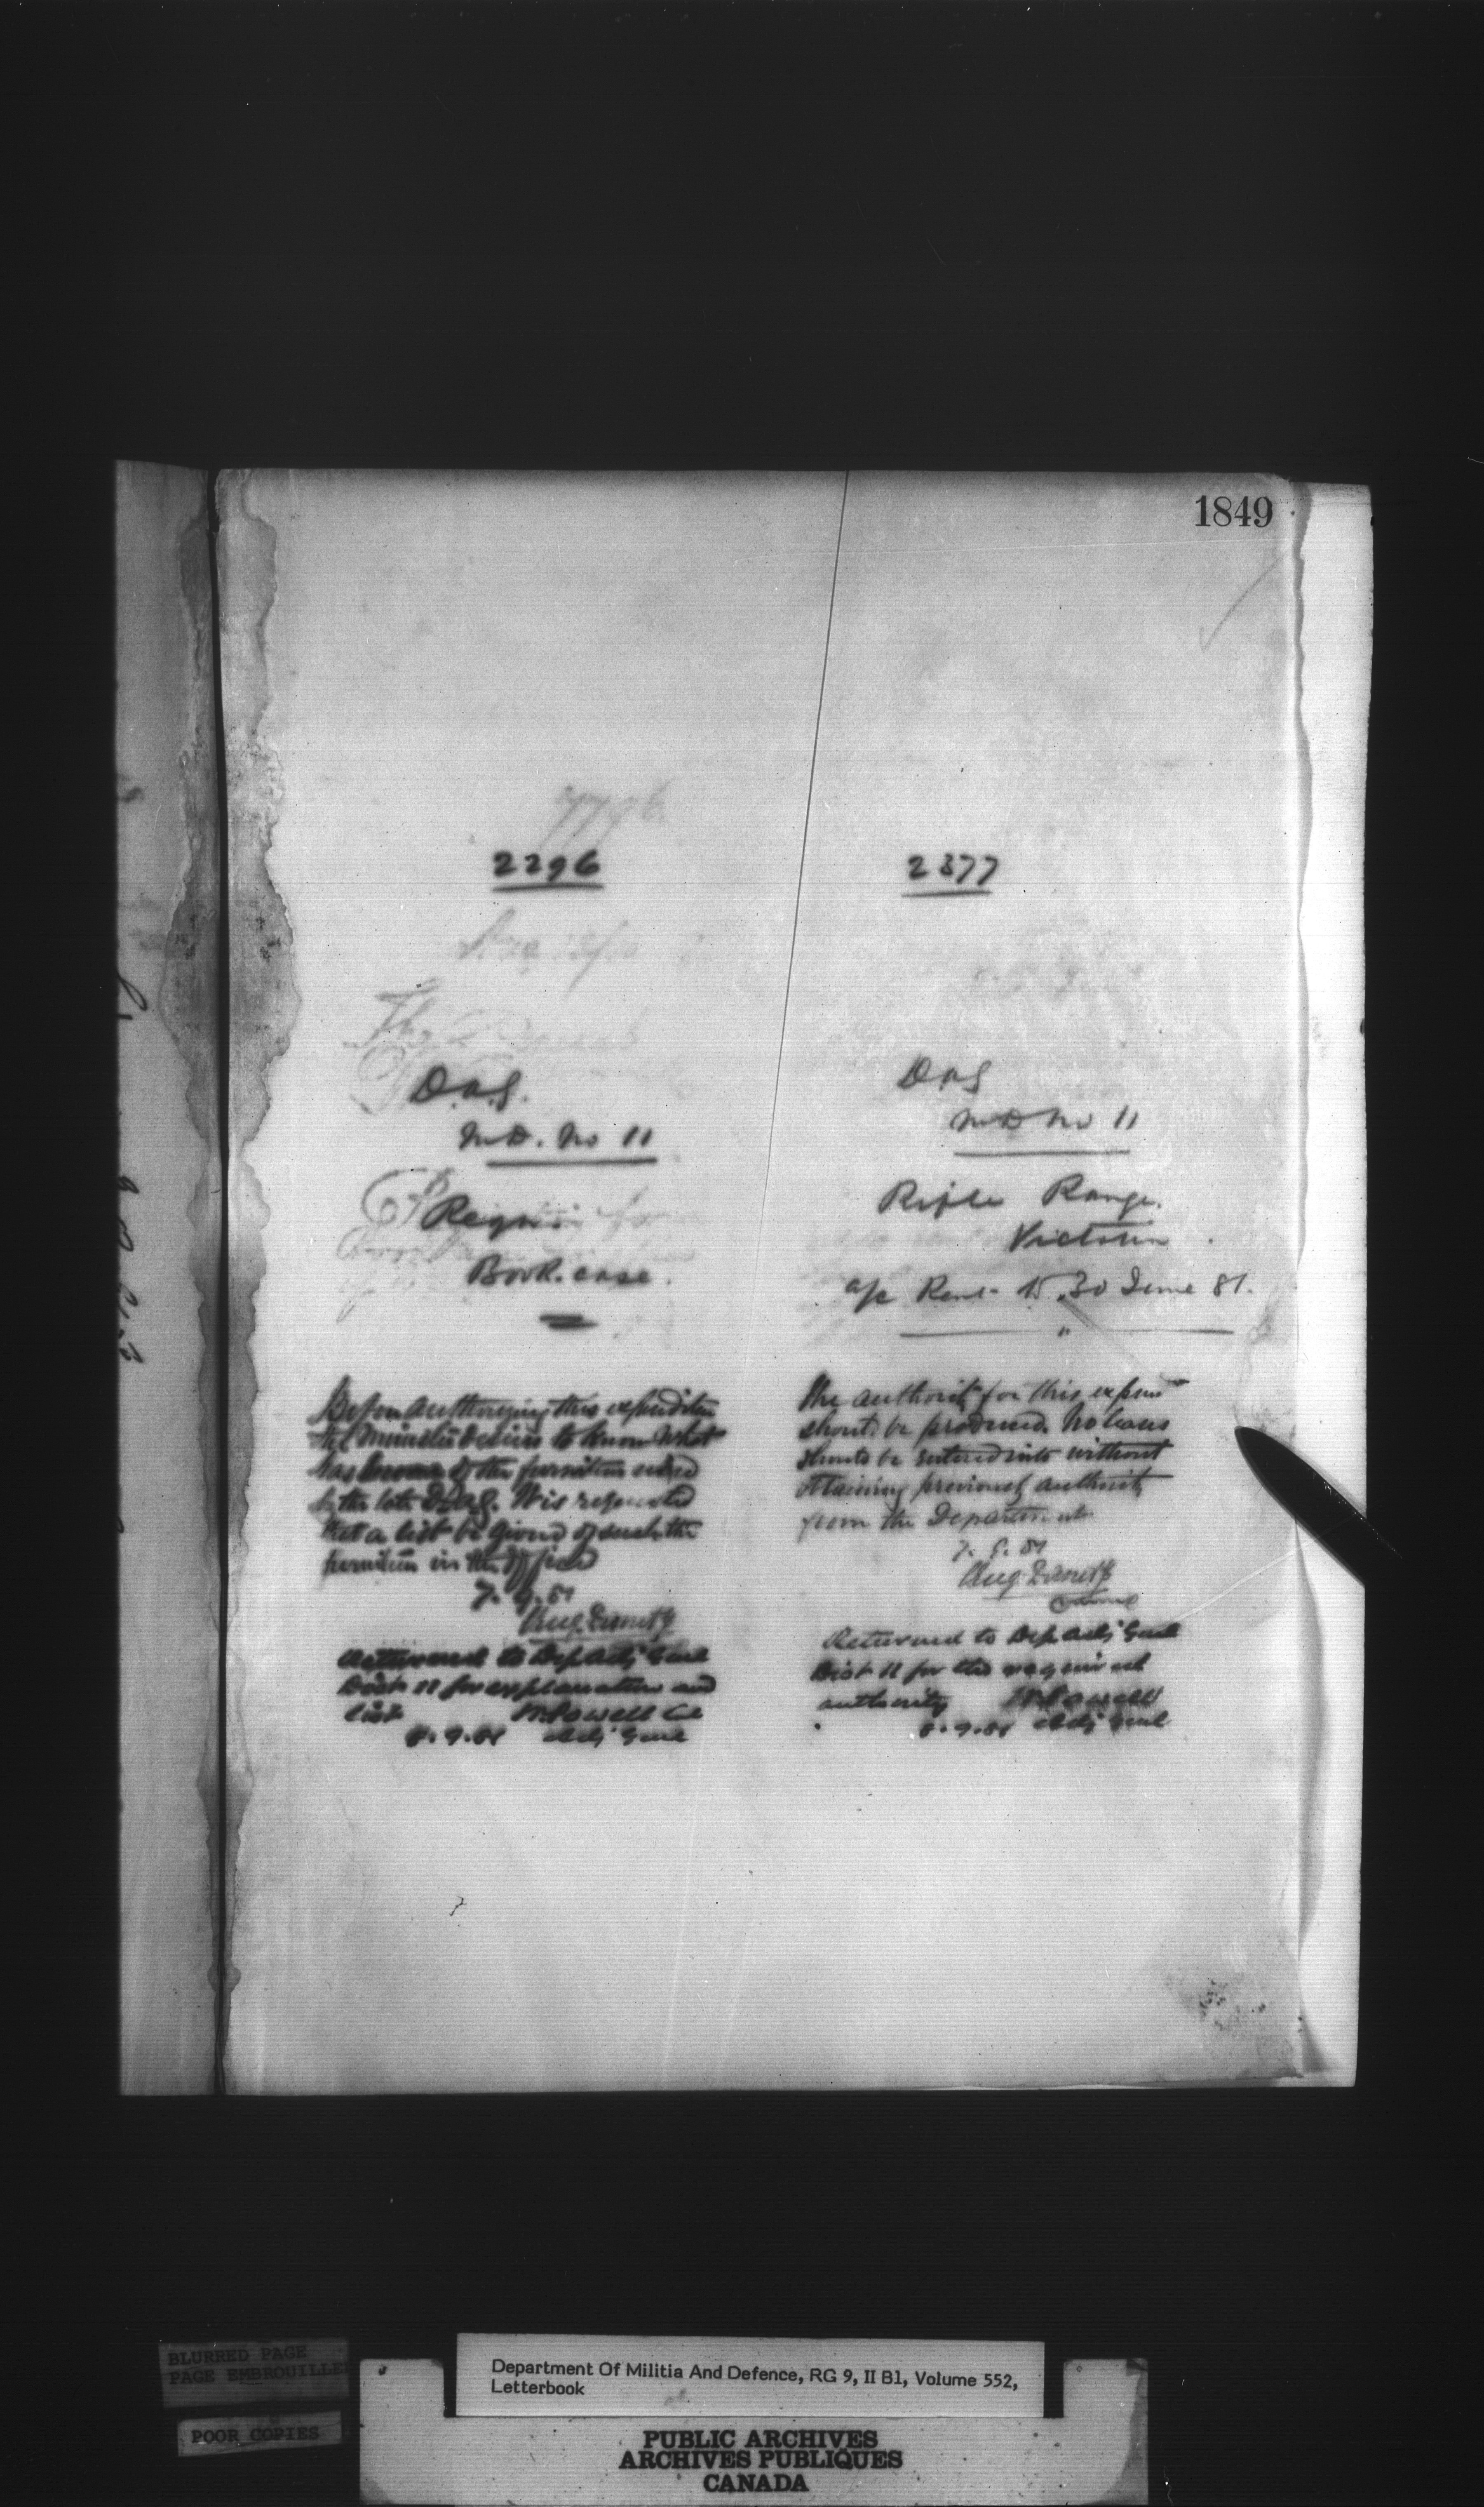 1849
2296
D.A.G.
M.D. No 11
Reqn:
Book-case.
Before authorizing this expenditure
the Minister desires to know what
has become of the furniture
by the late D.A.G. It is requested
that a list be given of such the
furniture in the office
7. 9. 81
Aug.
Returned to Dep Adj Genl
Dist 11 for explanation and
list W Powell Cl
8.9.81 Adj Genl
2377
DAG
MD No 11
Rifle Range.
Victoria
a/c Rent 30 June 81.
The authority for this expend
should be produced. No leases
should be entered into without
obtaining previously authority
from the Department
7. 9. 81
Aug.
Returned to Dep Adj Genl
Dist 11 for the required
authority W Powell
8.9.81 Adj Genl
BLURRED PAGE
PAGE EMBROUILLE
POOR COPIES
Department Of Militia And Defence, RG 9, II B1, Volume 552,
Letterbook
PUBLIC ARCHIVES
ARCHIVES PUBLIQUES
CANADA